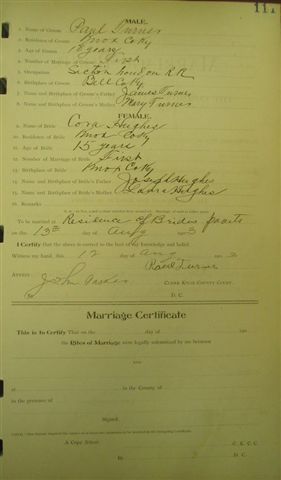 111
MALE.
1. Name of Groom Paul Turner
2. Residence of Groom Knox Co Ky
3. Age of Groom 18 years
4. Number of Marriage of Groom First
5. Occupation Section hand on RR
Bell Co Ky
7. Name and Birthplace of Groom's Father James Turner
8. Name and Birthplace of Groom's Mother Mary Turner
FEMALE.
9. Name of Bride Cora Hughes
10. Residence of Bride Knox Co Ky
11. Age of Bride 15 years
12. Number of Marriage of Bride First
13. Birthplace of Bride Knox Co Ky
14. Name and Birthplace of Bride's Father Joseph Hughes
15. Name and Birthplace of Bride's Mother Laura Hughes
16. Remarks
To be married at Residence of Brides parents
on the 13th day of Aug 3
I Certify that the above is correct to the best of my knowledge and belief.
Witness my hand, this 12 day of Aug 3
Paul Turner
Attest: Clerk Knox County Court.
John
D. C.
Marriage Certificate
This is to Certify That on the day of
the Rites of Marriage were legally solemnized by me between
and
at in the County of
in the presence of
Signed
A Copy Attest: C. K. C. C.
By D. C.